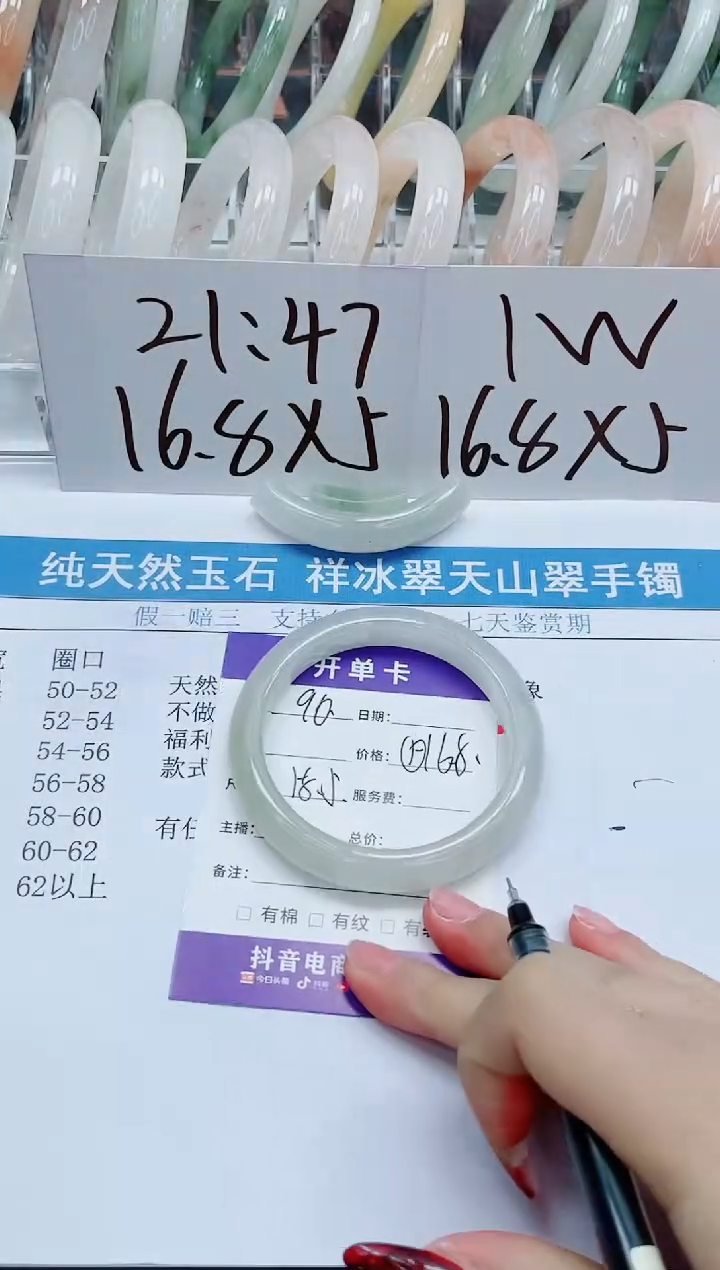 21:47 1W
16.8X5 16.8X5
纯天然玉石 祥冰翠天山翠手镯
假一赔三 支持 七天鉴赏期
圈口
50-52
52-54
54-56
56-58
58-60
60-62
62以上
天然
不做
福利
款式
有任
象
开单卡
90. 日期:
价格: 168.
服务费:
主播:
总价:
备注:
□ 有棉 □ 有纹 □ 有
抖音电商
今日头条 抖音